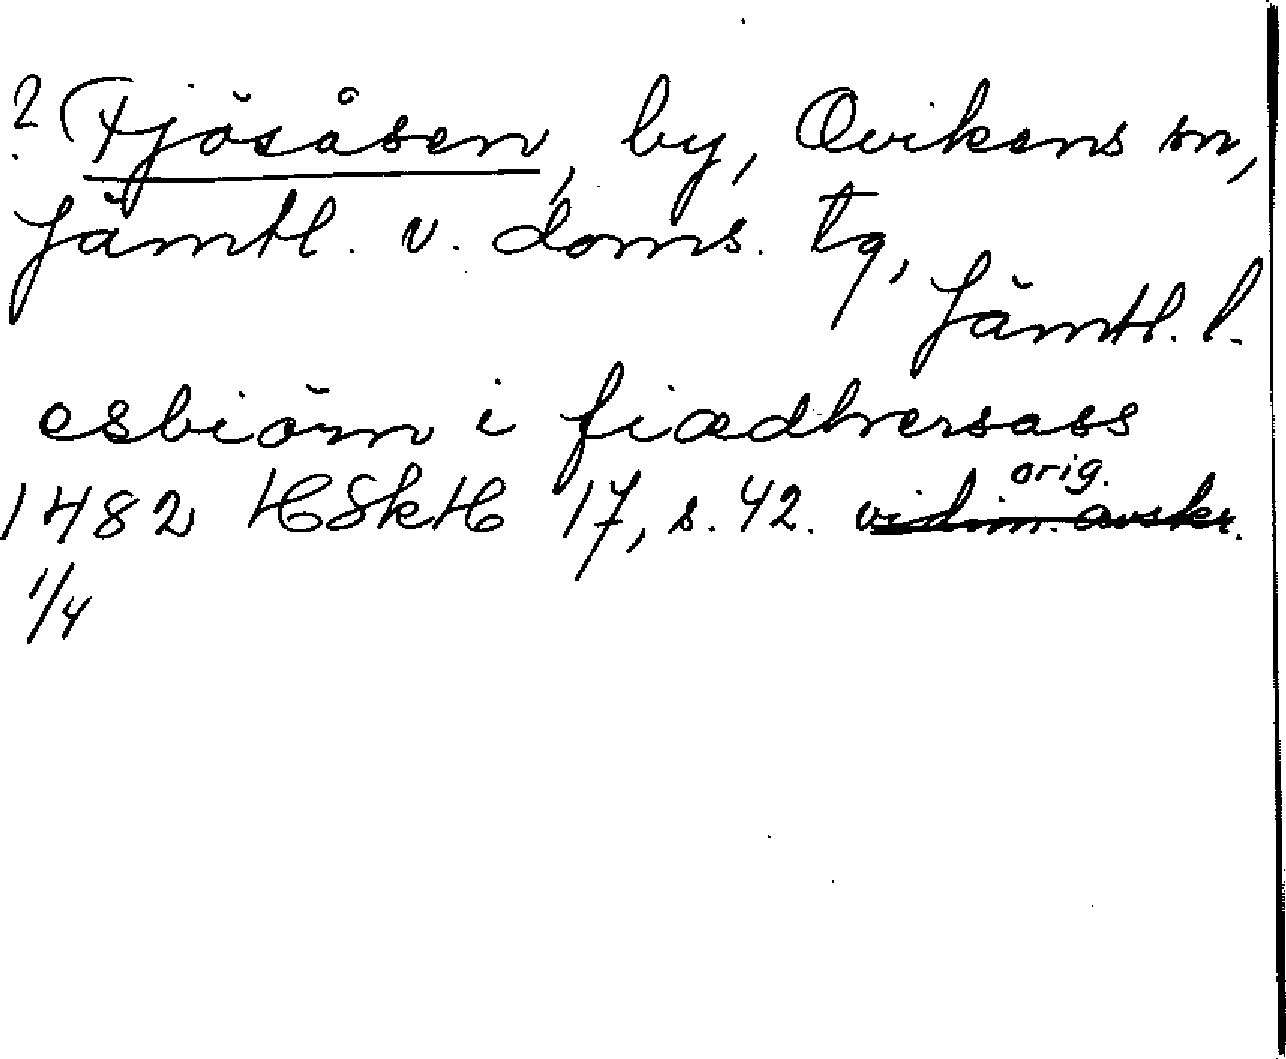 ? Fjösåsen, by, Ovikens sn,
Jämtl. v. doms. tg,
Jämtl. l.
esbiörn i fiædhersass
orig.
1482 HSkH 17, s. 42. vidim. avskr.
1/4